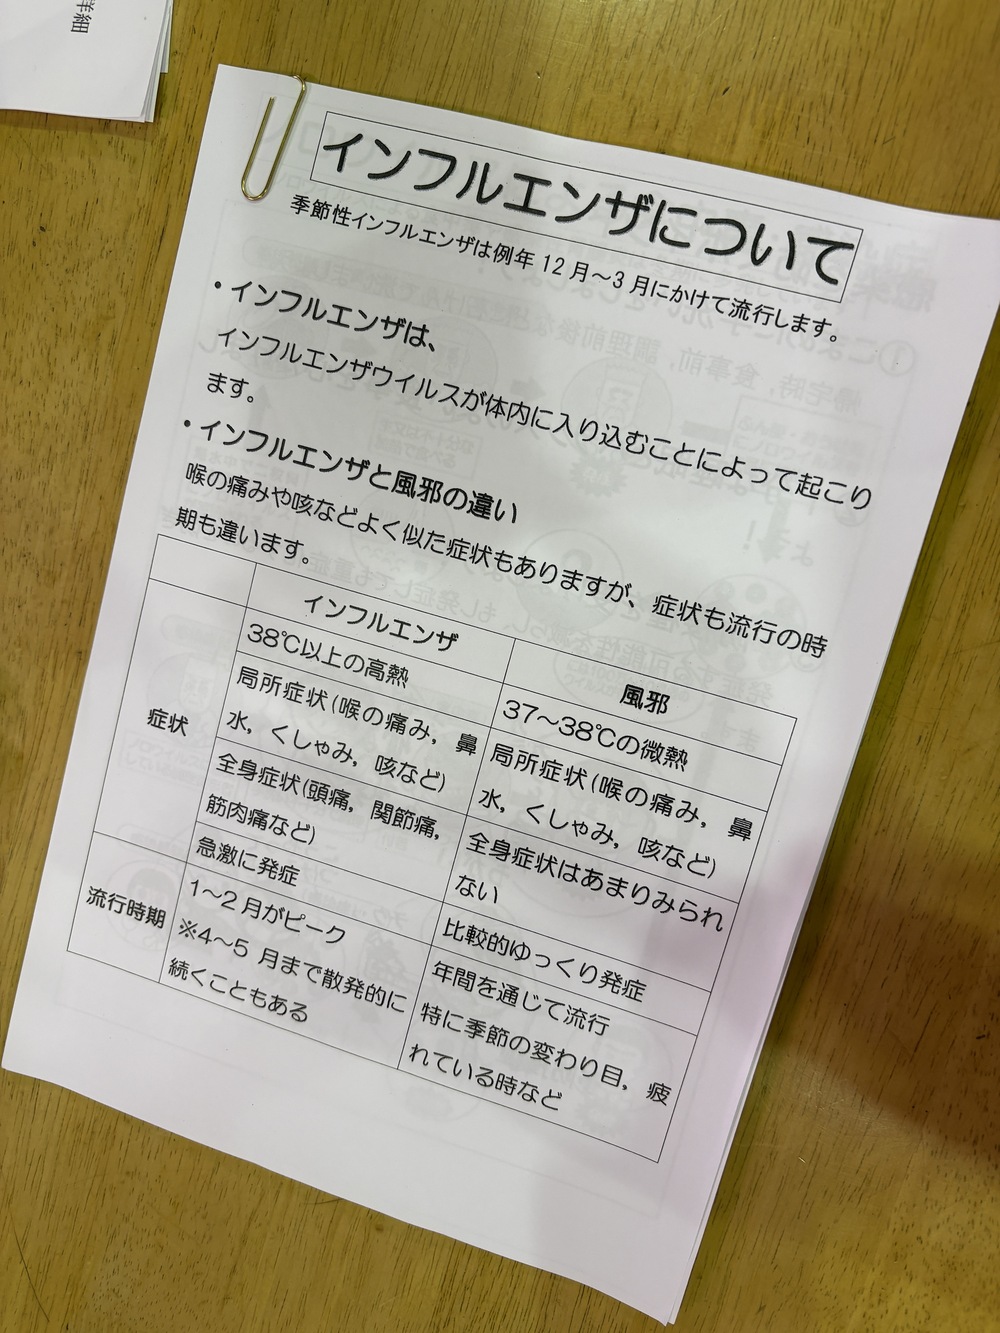 詳細
インフルエンザについて
季節性インフルエンザは例年 12 月～3 月にかけて流行します。
・インフルエンザは、
インフルエンザウイルスが体内に入り込むことによって起こり
ます。
・インフルエンザと風邪の違い
喉の痛みや咳などよく似た症状もありますが、症状も流行の時
期も違います。
インフルエンザ
風邪
症状
38℃以上の高熱
37～38℃の微熱
局所症状(喉の痛み，鼻
水，くしゃみ，咳など)
局所症状(喉の痛み，鼻
水，くしゃみ，咳など)
全身症状(頭痛，関節痛，
筋肉痛など)
全身症状はあまりみられ
ない
急激に発症
比較的ゆっくり発症
流行時期
1～2 月がピーク
※4～5 月まで散発的に
続くこともある
年間を通じて流行
特に季節の変わり目，疲
れている時など